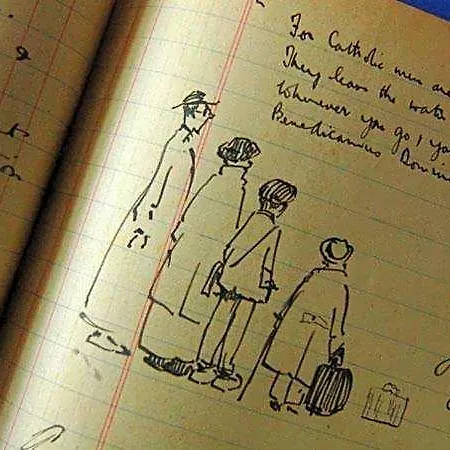 For Catholic men are
They learn the water
Whenever you go, yo
Benedicamus Domin